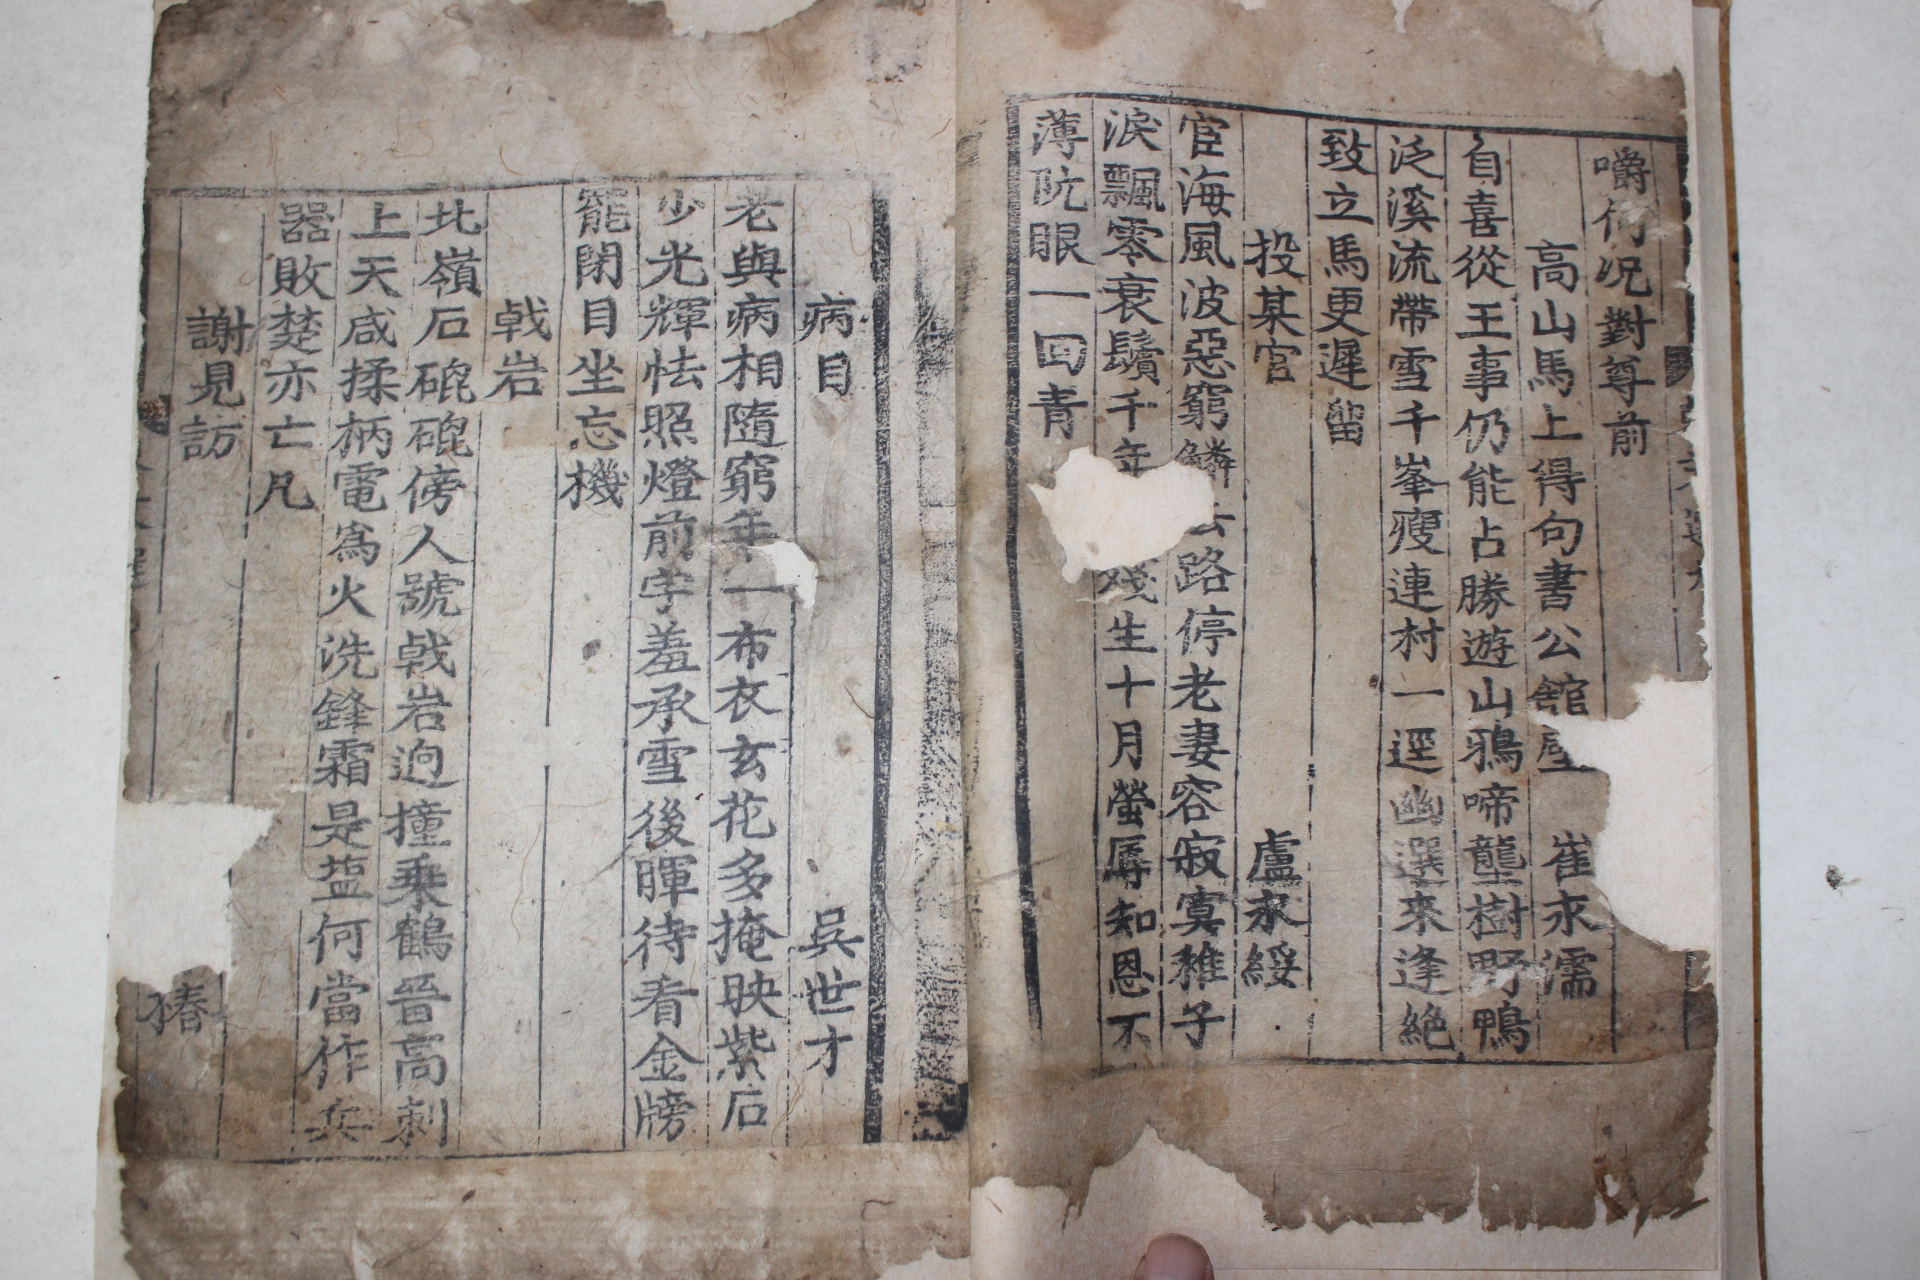 嚼何況對尊前
高山馬上得句書公館壁 崔永濡
自喜從王事仍能占勝遊山鴉啼壟樹野鴨
泛溪流帶雪千峯瘦連村一逕幽選來逢絶
致立馬更遲留
投某官 盧永綏
宦海風波惡窮鱗 路停老妻容寂寞稚子
淚飄零衰鬚千年 殘生十月螢辱知恩不
薄阮眼一回青
病目 吳世才
老與病相隨窮年一布衣玄花多掩映紫石
少光輝怯照燈前字羞承雪後暉待看金牓
罷閉目坐忘機
戟岩
北嶺石磈磈傍人號戟岩逈撞乘鶴晉高刺
上天咸揉柄電爲火洗鋒霜是塩何當作兵
器敗楚亦亡凡
謝見訪
椿